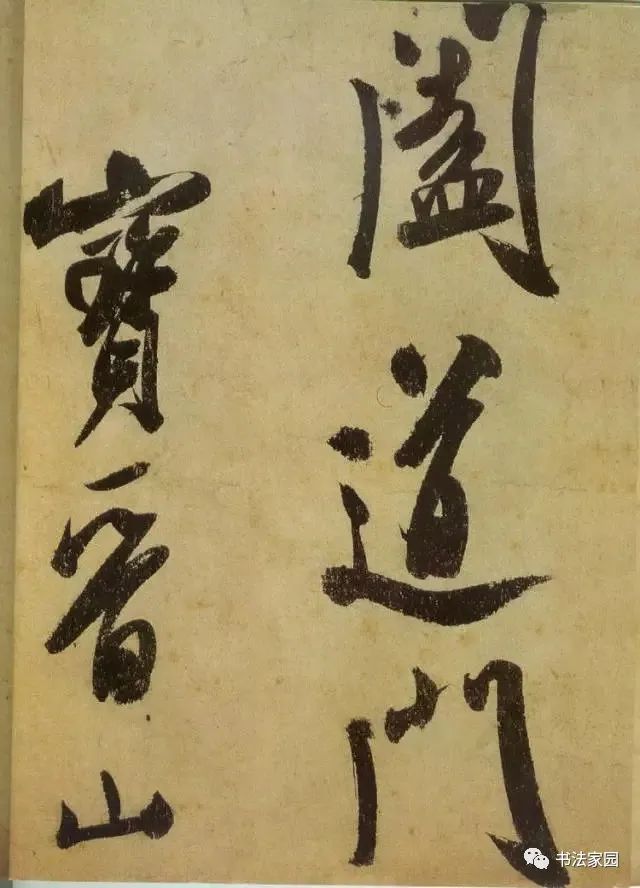 闔道門
寶晉山
书法家园